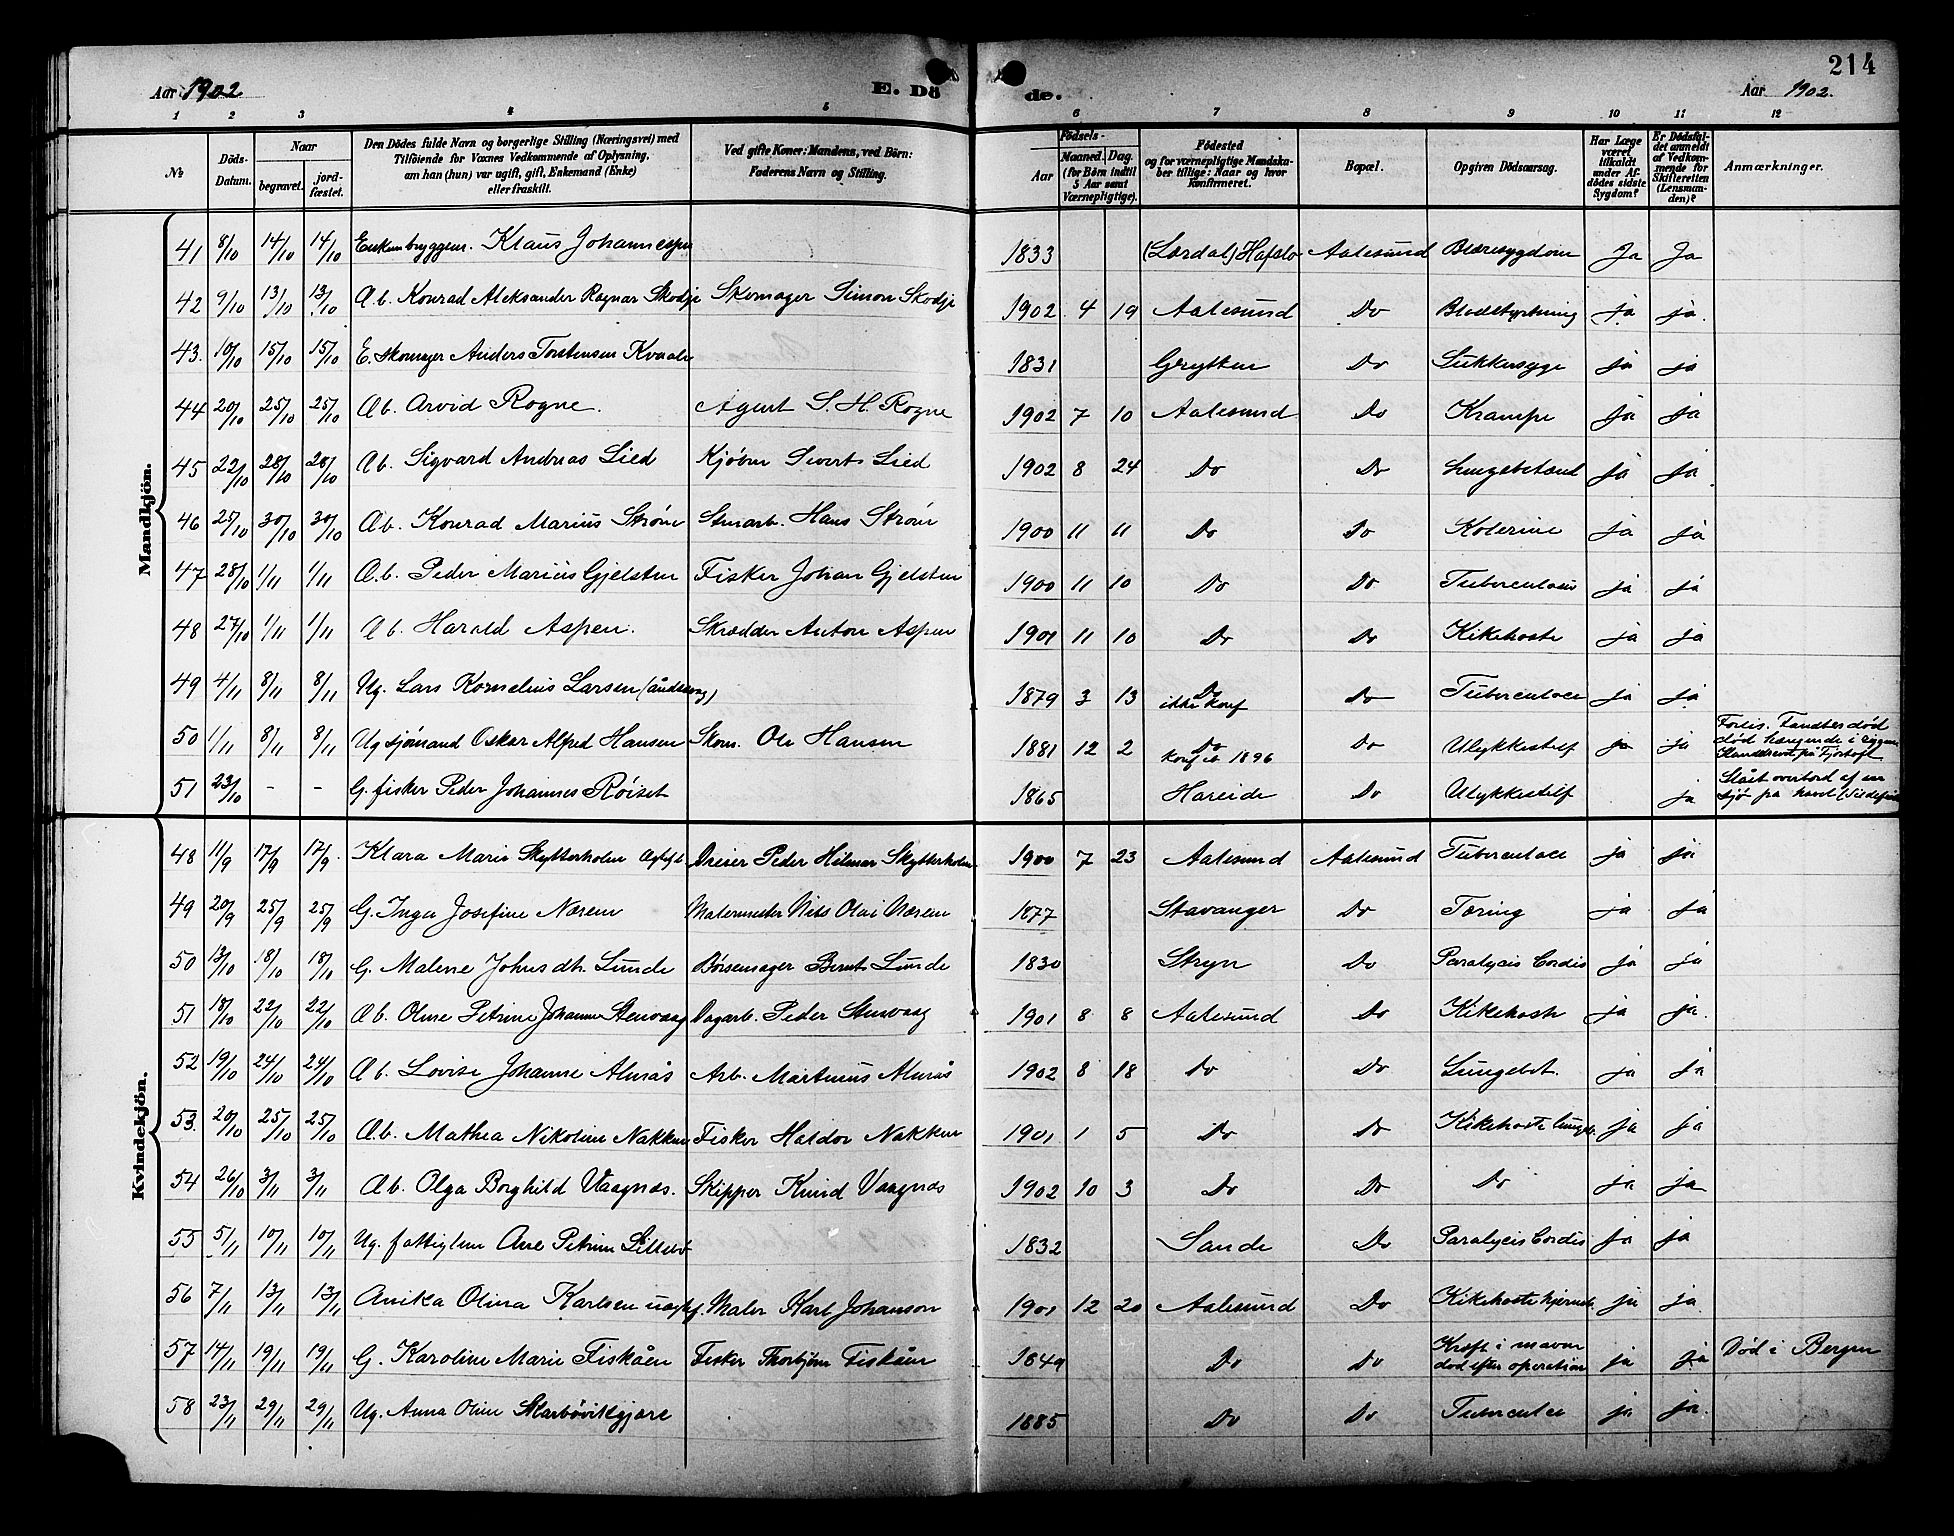 214
Aar 1902 E. Dö de. Aar 1902.
1 2 3 4 5 6 7 8 9 10 11 12
No Döds-Datum. Naar begravet. jordfæstet. Den Dödes fulde Navn og borgerlige Stilling (Næringsvei) med Tilföiende for Voxnes Vedkommende af Oplysning, om han (hun) var ugift, gift, Enkemand (Enke) eller fraskilt. Ved gifte Koner: Mandens, ved Börn: Faderens Navn og Stilling. Födsels- Aar Maaned. Dag. (for Börn indtil 5 Aar samt Værnepligtige). Födested og for værnepligtige Mandskaber tillige: Naar og hvor konfirmeret. Bopæl. Opgiven Dödsaarsag. Har Læge været tilkaldt under Afdödes sidste Sygdom? Er Dödsfaldet anmeldt af Vedkommende for Skifteretten (Lensmanden)? Anmærkninger.
Mandkjön.
41 8/10 14/10 14/10 Klaus Johannessen 1833 (Lærdal) Hafslo Aalesund Blæresygdom Ja Ja
42 9/10 13/10 13/10 Æ.b. Konrad Aleksander Ragnar Skodje Skomager Simon Skodje 1902 4 19 Aalesund Do Blodstyrtning ja ja.
43. 10/10 15/10 15/10 E. Skomager Anders Torstensen Kvaale 1831 Grytten Do Sukkersyge ja ja
44 20/10 25/10 25/10 Æb. Arvid Rogne. Agent S. H. Rogne 1902 7 10 Aalesund Do Krampe ja ja
45 22/10 28/10 28/10 Æb. Sigvard Andreas Lied Kjøbm Sivert Lied 1902 8 24 Do Do Lungebetænd ja ja
46 25/10 30/10 30/10 Æb. Konrad Marius Strøm Stuarb. Hans Strøm 1900 11 11 Do Do Kolerine ja ja
47 28/10 1/11 1/11 Æ.b. Peder Marius Gjelsten Fisker Johan Gjelsten 1900 11 10 Do Do Tuberculose ja ja
48 27/10 1/11 1/11 Æb. Harald Aspen. Skrædder Anton Aspen 1901 11 10 Do Do Kikehoste ja ja
49 4/11 8/11 8/11 Ug. Lars Kornelius Larsen (åndssvag) 1879 3 13 Do ikke konf Do Tuberculose ja ja
50 1/11 8/11 8/11 Ug sjømand Oskar Alfred Hansen Skom. Ole Hansen 1881 12 2 Do konf 1896 Do Ulykkestilf ja ja Forlis. Fandtes død hængende i på Fjørtoft
51 23/10 - - G. fisker Peder Johannes Røiset 1865 Hareide Do Ulykkestilf ja Slået overbord af en sjø på havet
Kvindekjön.
48 11/9 17/9 17/9. Klara Marie Skytterholm Dreier Peder Hilmar Skytterholm 1900 7 23 Aalesund Aalesund Tuberculose ja ja
49 20/9 25/9 25/9 G. Inga Josefine Nærem Malermester Nils Olai Nærem 1877 Stavanger Do Tæring ja ja
50 13/10 18/10 18/10 G. Malene Johnsdtr. Lunde Børsemager Bernt Lunde 1830 Stryn Do Paralycis Cordis ja ja
51 18/10 22/10 22/10 Æb. Oline Petrine Johanne Stenvaag Dagarb. Peder Stenvaag 1901 8 8 Aalesund Do Kikehoste ja ja.
52 19/10 24/10 24/10 Æb. Lovise Johanne Almås Arb. Martinus Almås 1902 8 18 Do Do Lungebet. ja ja
53. 20/10 25/10 25/10 Æ.b. Mathea Nikoline Nakken Fisker Haldor Nakken 1901 1 5 Do Do Kikehoste lungeb. ja ja
54 26/10 3/11 3/11 Æb. Olga Borghild Vaagnæs. Skipper Knud Vaagnæs 1902 10 3 Do Do Do ja ja
55 5/11 10/11 10/11 Ug. fattiglem Ane Petrine 1832 Sande Do Paralycis Cordis ja ja
56 7/11 13/11 13/11 Anika Olina Karlsen uægtef. Maler Karl Johanson 1901 12 20 Aalesund Do Kikehoste hjerneb. ja ja.
57 14/11 19/11 19/11 G. Karoline Marie Fiskåen Fisker Thorbjørn Fiskåen 1849 Do Do Kræft i maven død efter operation ja ja Død i Bergen
58 23/11 29/11 29/11 Ug. Anna Oline Skarbøvikgjære 1885 Do Do Tuberculos ja ja.